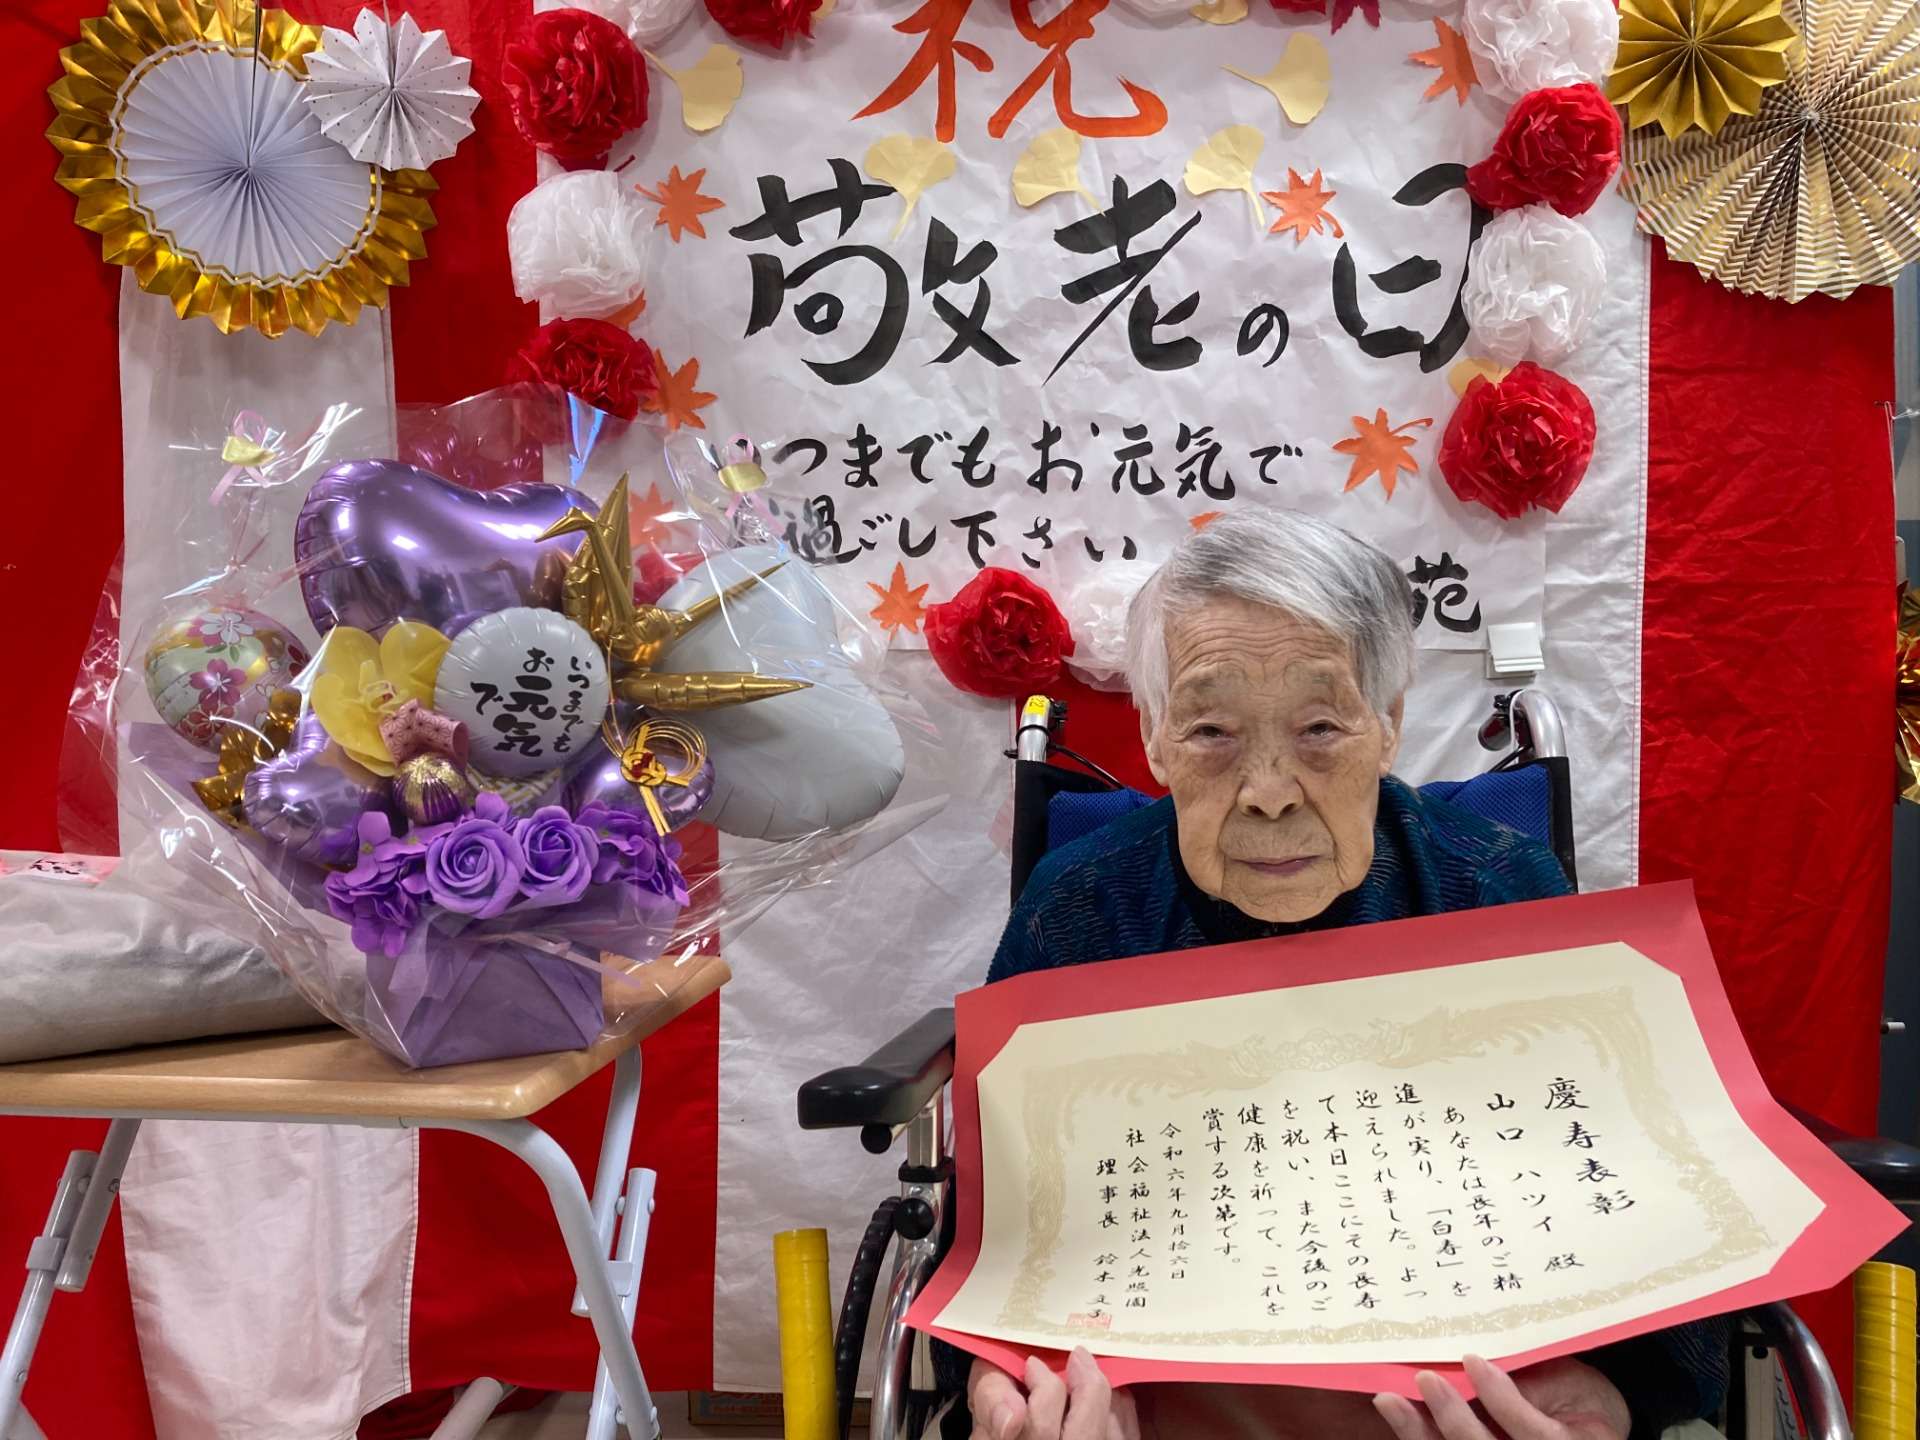 祝
敬老の日
いつまでもお元気で
お過ごし下さい
苑
いつまでも
お元気
で
慶寿表彰
山口 ハツイ 殿
あなたは長年のご精
進が実り、「白寿」を
迎えられました。よっ
て本日ここにその長寿
を祝い、また今後のご
健康を祈って、これを
賞する次第です。
令和六年九月拾六日
社会福祉法人光照園
理事長 鈴木文子